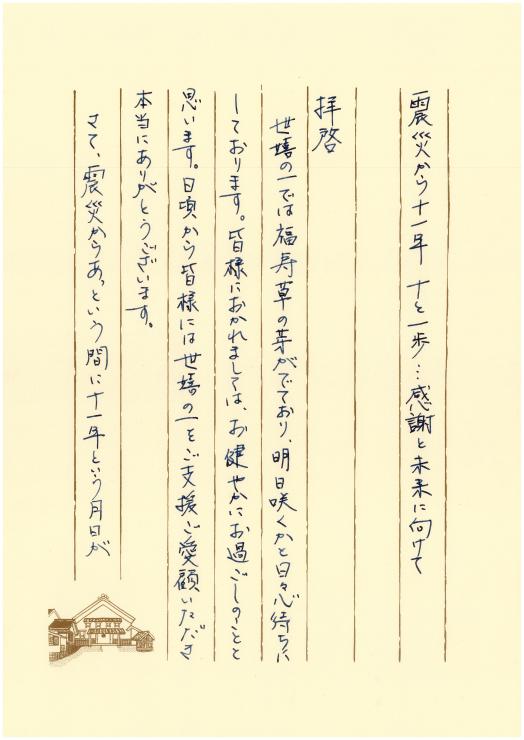 震災から十一年 十と一歩…感謝と未来に向けて
拝啓
世嬉の一では福寿草の芽がでており、明日咲くかと日々心待ちに
しております。皆様におかれましては、お健やかにお過ごしのことと
思います。日頃から皆様には世嬉の一をご支援ご愛顧いただき
本当にありがとうございます。
さて、震災からあっという間に十一年という月日が